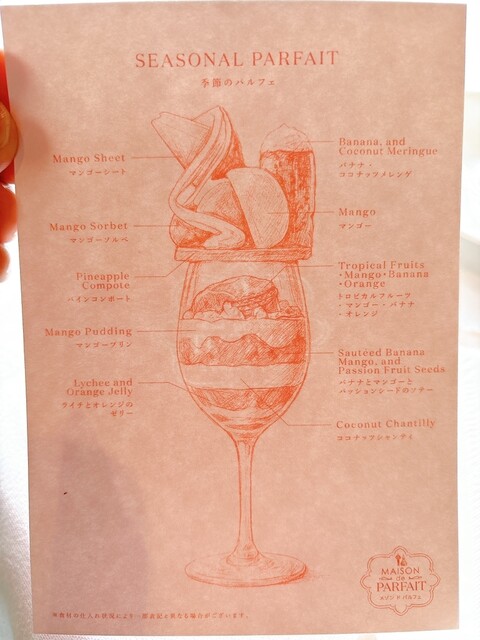 SEASONAL PARFAIT
季節のパルフェ
Mango Sheet
マンゴーシート
Mango Sorbet
マンゴーソルベ
Pineapple
Compote
パインコンポート
Mango Pudding
マンゴープリン
Lychee and
Orange Jelly
ライチとオレンジの
ゼリー
Banana, and
Coconut Meringue
バナナ・
ココナッツメレンゲ
Mango
マンゴー
Tropical Fruits
・Mango・Banana
・Orange
トロピカルフルーツ
・マンゴー・バナナ
・オレンジ
Sautéed Banana
Mango, and
Passion Fruit Seeds
バナナとマンゴーと
パッションシードのソテー
Coconut Chantilly
ココナッツシャンティ
※食材の仕入れ状況により一部表記と異なる場合がございます。
MAISON
de
PARFAIT
メゾン ド パルフェ